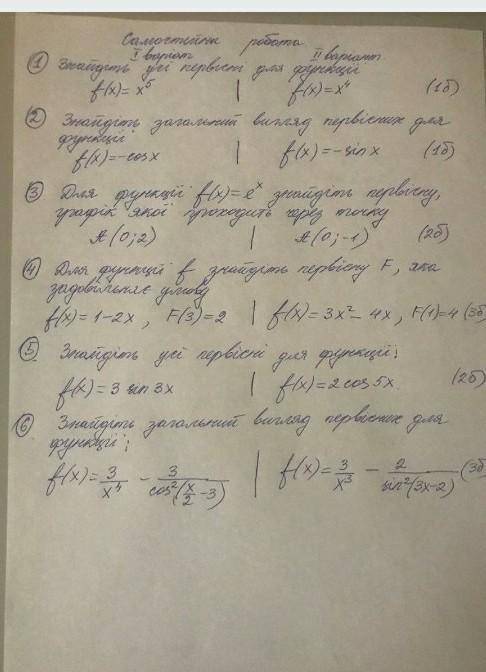 Самостійна робота
I варіант II варіант
① Знайдіть усі первісні для функції
f(x) = x⁵ | f(x) = x⁴ (1б)
② Знайдіть загальний вигляд первісних для
функції
f(x) = -cosx | f(x) = -sin x (1б)
③ Для функції f(x) = eˣ знайдіть первісну,
графік якої проходить через точку
A(0;2) | A(0;-1) (2б)
④ Для функції f знайдіть первісну F, яка
задовільняє умову
f(x) = 1-2x, F(3) = 2 | f(x) = 3x² - 4x, F(1) = 4 (3б)
⑤ Знайдіть усі первісні для функції;
f(x) = 3 sin 3x | f(x) = 2 cos 5x (2б)
⑥ Знайдіть загальний вигляд первісних для
функції;
f(x) = 3/x⁴ - 3/cos²(x/2 - 3) | f(x) = 3/x³ - 2/sin²(3x-2) (3б)